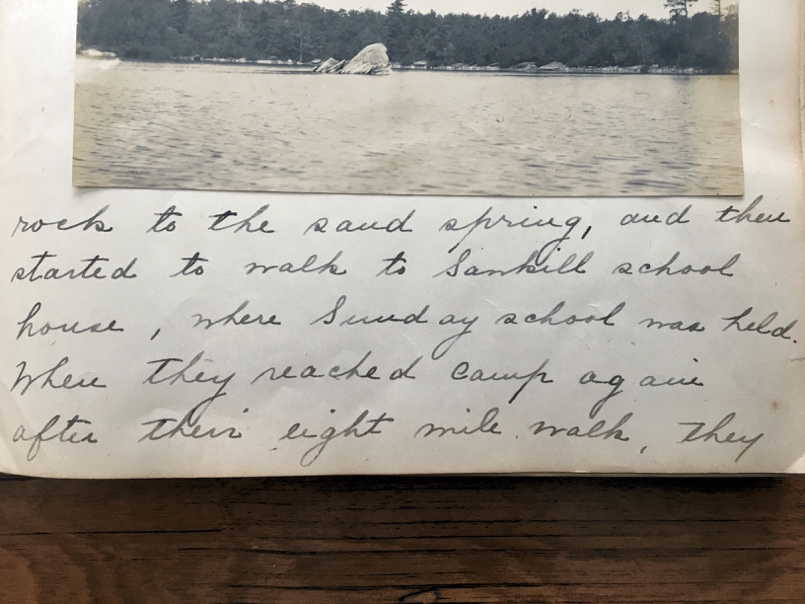 rock to the sand spring, and then
started to walk to Sawkill school
house, where Sunday school was held.
When they reached camp again
after their eight mile walk, they